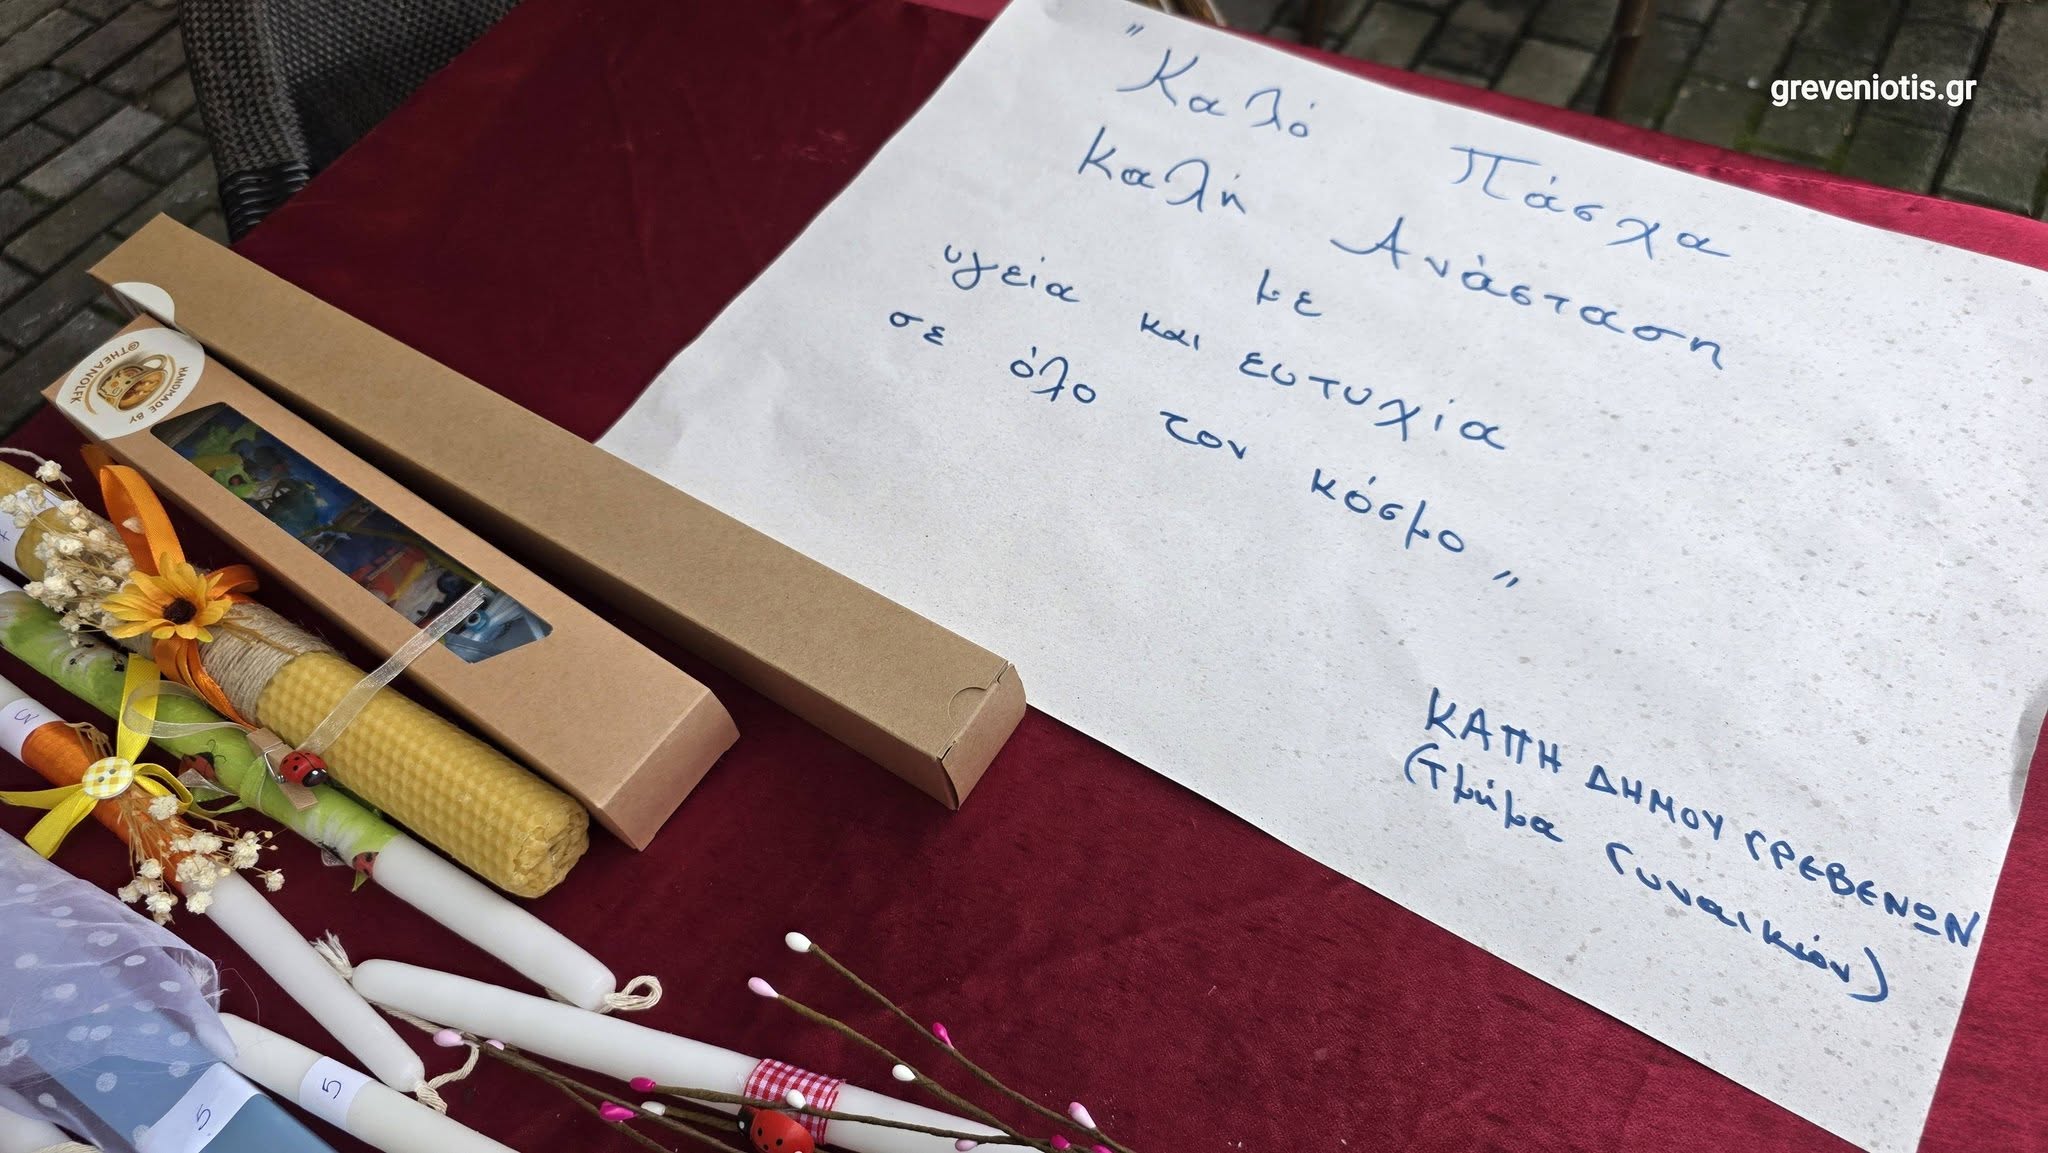 greveniotis.gr
"Καλό Πάσχα
Καλή Ανάσταση
με
υγεία και ευτυχία
σε όλο τον κόσμο"
ΚΑΠΗ ΔΗΜΟΥ ΓΡΕΒΕΝΩΝ
(Τμήμα Γυναικών)
HANDMADE BY
@THEANOLFK
3
5
5